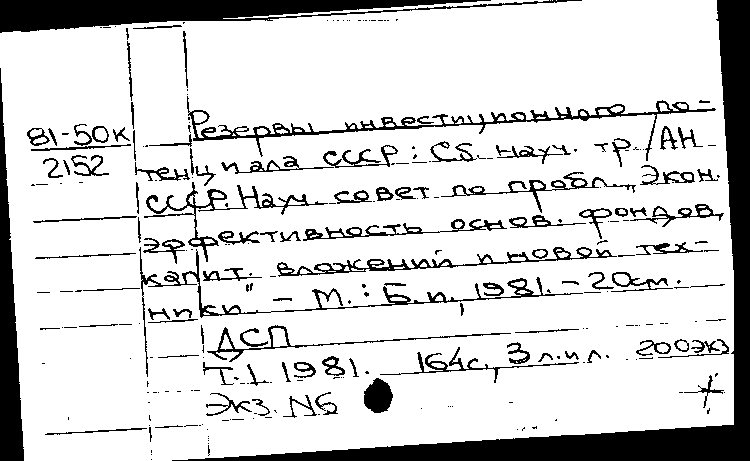 81-50к
2152
Резервы инвестиционного по-
тенциала СССР: Сб. науч. тр./АН
СССР. Науч. совет по пробл. „Экон.
эффективность основ. фондов,
капит. вложений и новой тех-
ники" - М.: Б.и., 1981. - 20см.
ДСП
Т.1 1981. 164с., 3 л.ил. 200экз
Экз. N6